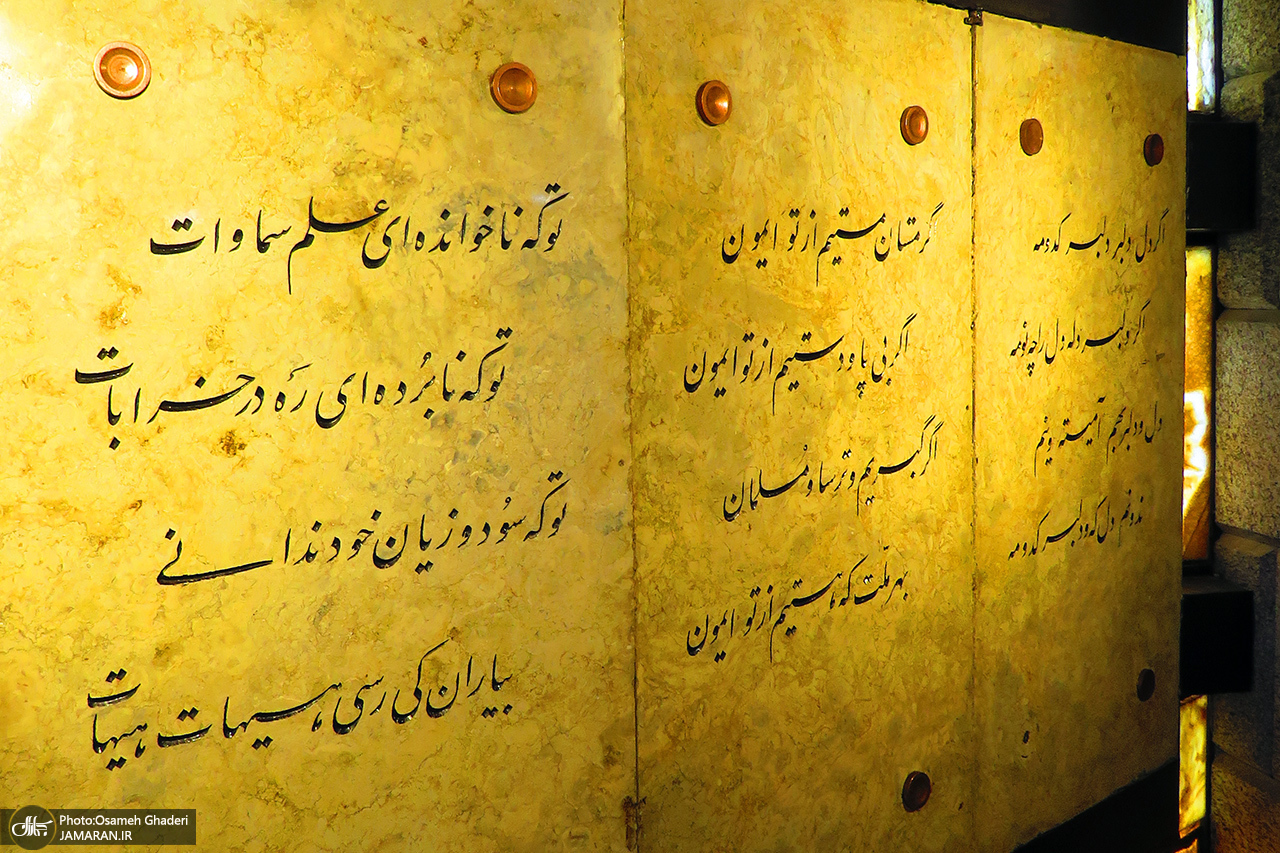 اگر دل دلبر دلبر کدومه
اگر دلبر دله دل را چه نومه
دل و دلبر بهم آمیته وینم
ندونم دل که و دلبر کدومه
گر مستان مستیم از تو ایمون
اگر بی پا و دستیم از تو ایمون
اگر گبریم و ترسا و مُسلمان
بهر ملت که هستیم از تو ایمون
تو که ناخوانده ای علم سماوات
تو که نابُرده ای رَه در خرابات
تو که سُود و زیان خود ندانی
بیاران کی رسی هیهات هیهات
Photo:Osameh Ghaderi
JAMARAN.IR